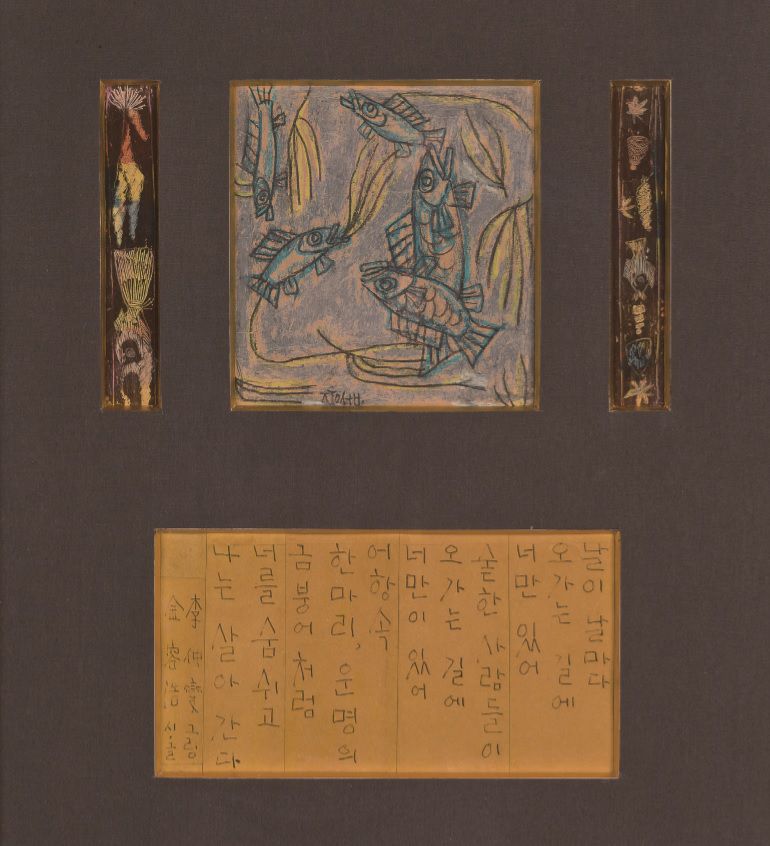 ㅈㅜㅇㅅㅓㅂ
날이 날마다
오가는 길에
너만 있어
숱한 사람들이
오가는 길에
너만이 있어
어항 속
한마리, 운명의
금붕어처럼
너를 숨쉬고
나는 살아간다
李仲燮 그림
金容浩